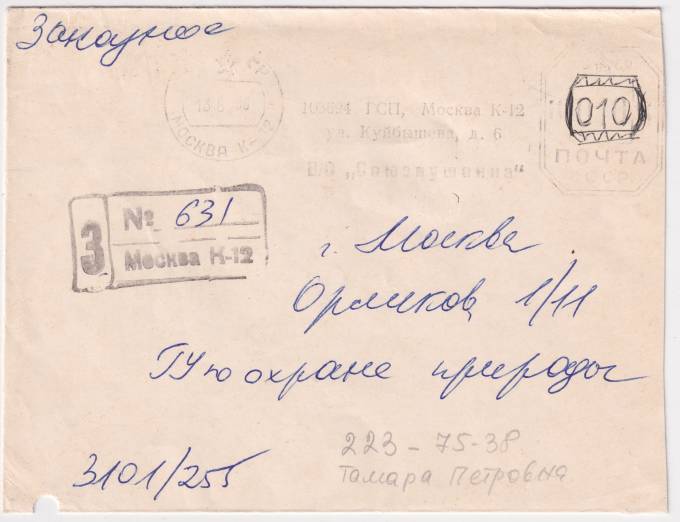 Заказное
МОСКВА К-12
103694 ГСП, Москва К-12
ул. Куйбышева, д. 6
В/О „Союзпушнина"
010
ПОЧТА
СССР
З
№ 631
Москва К-12
г. Москва
Орликов 1/11
ГУ по охране природы
3101/255
223-75-38
Тамара Петровна